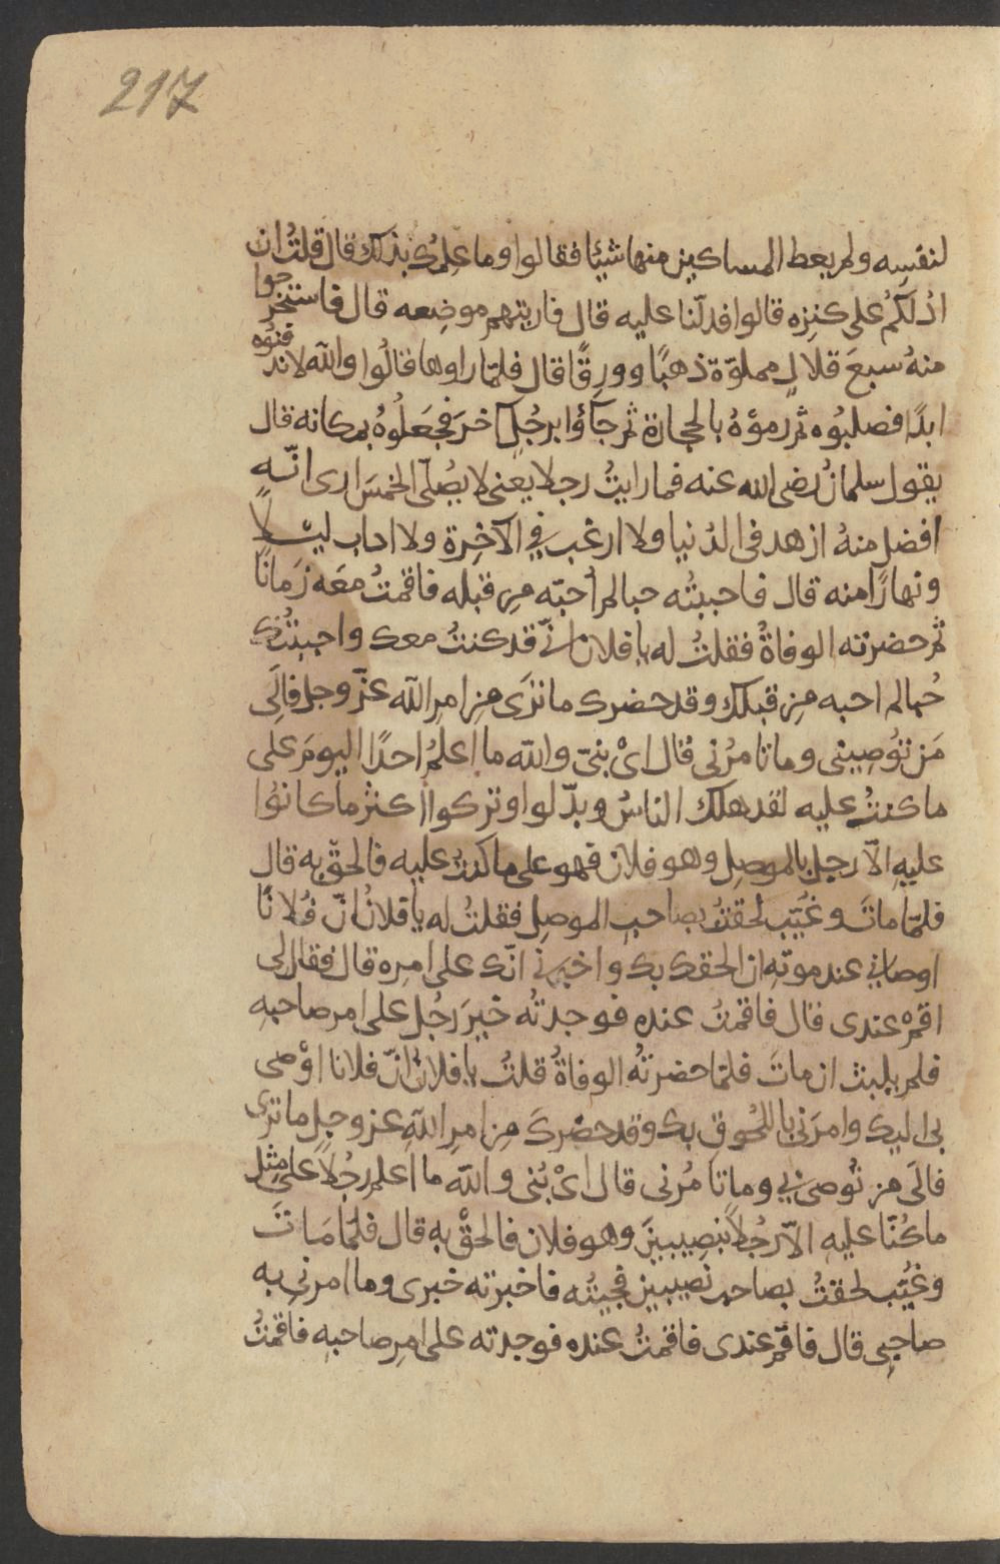 217
لنفسِه ولم يعط المساكين منها شيئا فقالوا وما عِلمُك بذلك قال قلتُ ان
ادُلكُم على كنزِه قالوا فدلّنا عليه قال فاريتهم موضِعه قال فاستخرجوا
منهُ سبعَ قلالٍ مملوّة ذهبًا وورِقًا قال فلمّا راوها قالُوا والله لا ندفنُوه
ابدًا فصلبُوه ثم رموْهُ بالحجارة ثم جآؤا برجُلٍ آخرَ فجعَلُوهُ بمكانه قال
يقول سلمانُ رضى الله عنه فما رايتُ رجلا يعنى لا يصُلّى الخمسَ ارى انّه
افضل منهُ ازهد فى الدُنيا ولا ارغب فِي الآخِرة ولا اداب ليْلًا
ونهارًا منه قال فاحببتُه حبا لم اُحبّه مِن قبله فاقمتُ معَه زَمانًا
ثم حضرته الوفاةُ فقلتُ له يا فلان انّي قد كنتُ معك واحببتُك
حُبا لم احبه مِن قبلك وقد حضرك ما ترَى مِن امرِ الله عزّ وجل فالَى
مَن تُوصِينى وما تامرُنى قال اىْ بنىّ والله ما اعلمُ احدًا اليومَ على
ما كنتُ عليه لقد هلك الناسُ وبدّلوا وتركوا اكثر ما كانوُا
عليهِ الاّ رجل بالموصِل وهو فلان فهو على ما كنت عليه فالحقْ به قال
فلمّا ماتَ وغُيّب لحقتُ بصاحبِ الموصِل فقلتُ له يا فلانُ انّ فُلانًا
اوصاني عند موتِه ان الحقك بك واخبرني انّك على امرِه قال فقال لى
اقمْ عندى قال فاقمتُ عنده فوجدتُه خيرَ رجُلٍ على امرِ صاحبهِ
فلم يلبث ان ماتَ فلمّا حضرتهُ الوفاةُ قلتُ يا فلانُ انّ فلانا اوْصى
بى اليك وامرَنى باللحُوقِ بك وقد حضركَ مِن امرِ اللّهِ عز وجل ما ترى
فالَى من تُوصى بِي وما تامُرنى قال اىْ بُنى والله ما اعلم رجُلاً على مِثل
ما كُنّا عليهِ الاّ رجُلاً بنصِيبينَ وهو فلان فالحقْ بهِ قال فلمّا مَاتَ
وغُيّب لحقتُ بصاحب نصيبين فجيئتُه فاخبرته خبرى وما امرنى به
صاحبِى قال فاقم عندى فاقمتُ عنده فوجدته على امرِ صاحبهِ فاقمتُ